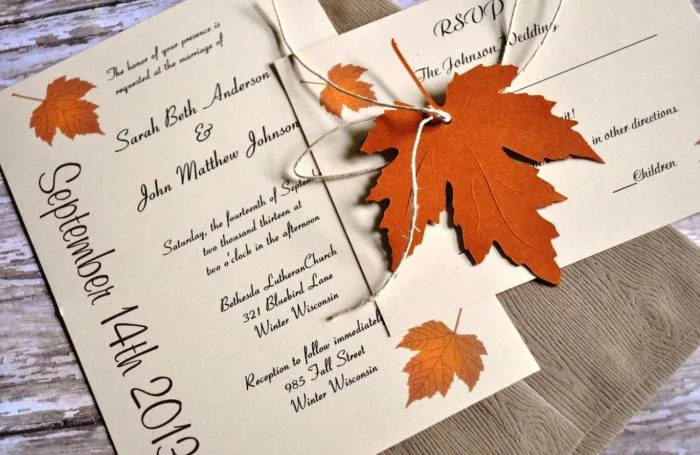 The honor of your presence is
requested at the marriage of
Sarah Beth Anderson
&
John Matthew Johnson
Saturday, the fourteenth of Septem
two thousand thirteen at
two o'clock in the afternoon
Bethesda LutheranChurch
321 Bluebird Lane
Winter Wisconsin
Reception to follow immediately
985 Fall Street
Winter Wisconsin
September 14th 2013
RSVP
The Johnson Wedding
it!
in other directions
___Children